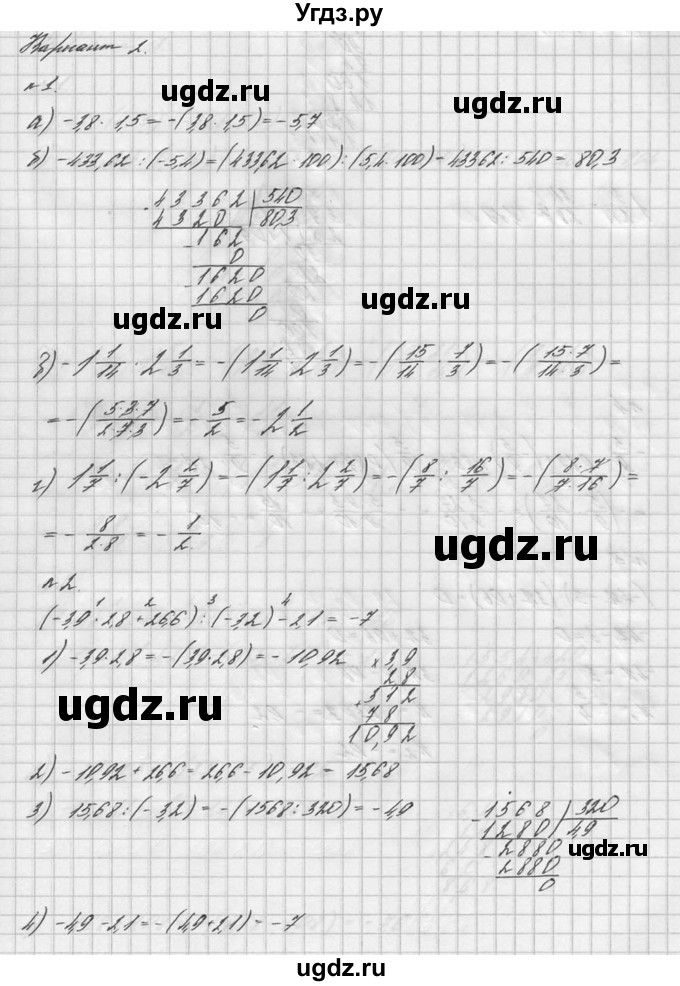 Угдз.ру
Вариант 2.
№1.
а) -3,8 · 1,5 = -(3,8 · 1,5) = -5,7
ugdz.ru ugdz.ru
б) -433,62 : (-5,4) = (433,62 · 100) : (5,4 · 100) = 43362 : 540 = 80,3
-43362 | 540
4320 80,3
-162
0
-1620
1620
0
ugdz.ru ugdz.ru
в) -1 1/14 · 2 1/3 = -(1 1/14 · 2 1/3) = -(15/14 · 7/3) = -(15·7/14·3) =
= -(5·3·7/2·7·3) = -5/2 = -2 1/2
г) 1 1/7 : (-2 2/7) = -(1 1/7 : 2 2/7) = -(8/7 : 16/7) = -(8·7/7·16) =
= -8/2·8 = -1/2
ugdz.ru
№2.
(-3,9 · 2,8 + 26,6) : (-3,2) - 2,1 = -7
1 2 3 4
1) -3,9·2,8 = -(3,9·2,8) = -10,92
×3,9
2,8
+312
78
10,92
ugdz.ru
2) -10,92 + 26,6 = 26,6 - 10,92 = 15,68
3) 15,68 : (-3,2) = -(1568 : 320) = -4,9
-1568 | 320
1280 4,9
-2880
2880
0
ugdz.ru
4) -4,9 - 2,1 = -(4,9 + 2,1) = -7
ugdz.ru
ugdz.ru